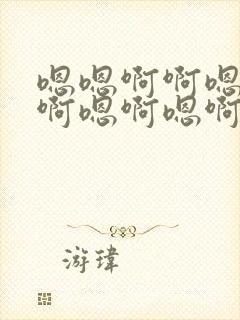 嗯嗯啊啊嗯
啊嗯啊嗯啊
游瑋